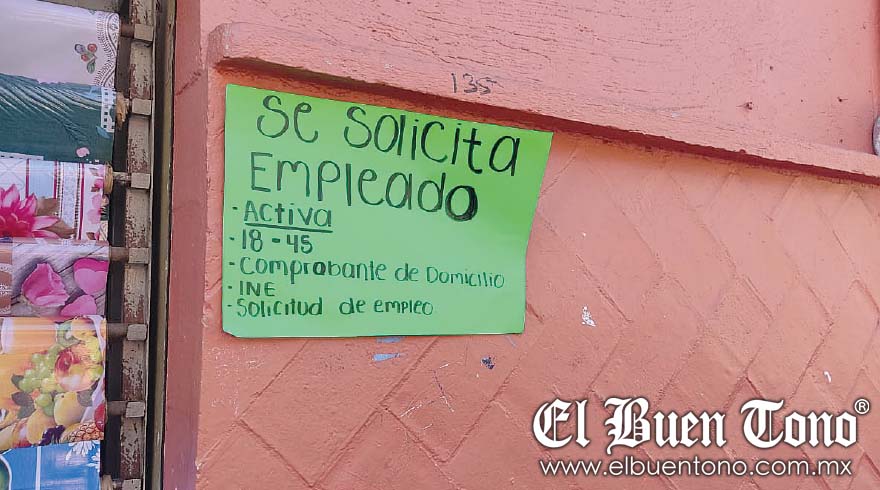 135
Se Solicita
Empleado
- Activa
- 18 - 45
- Comprobante de Domicilio
- INE
- Solicitud de empleo
El Buen Tono®
www.elbuentono.com.mx